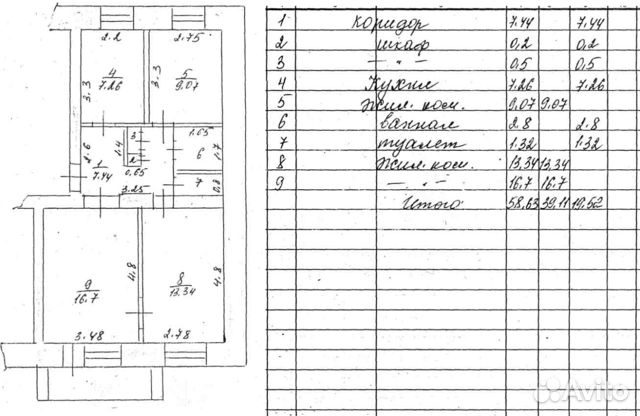 2.2
2.75
3.3
4
7.26
3.3
5
9.07
1.65
2.6
1.4
3
2
6
1.7
1
7.44
0.65
7
0.8
3.25
9
16.7
4.8
8
13.34
4.8
3.48
2.78
1 Коридор 7.44 7.44
2 шкаф 0,2 0,2
3 — " — 0,5 0,5
4 Кухня 7.26 7.26
5 Жил. ком. 9,07 9,07
6 ванная 2.8 2.8
7 туалет 1.32 1.32
8 Жил. ком. 13,34 13,34
9 — " — 16,7 16,7
Итого 58,63 39,11 19,52
Avito